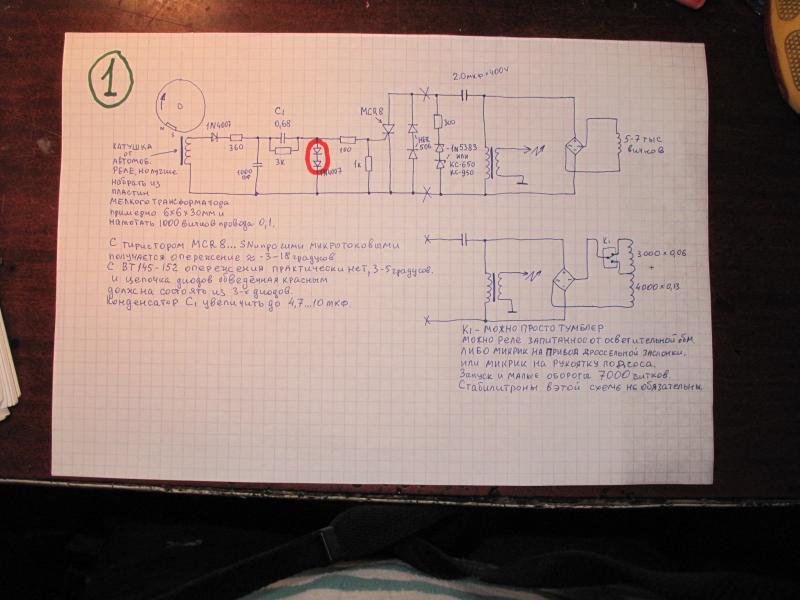 1
N
S
1N4007
360
C1
0,68
3к
1000
пф
1N4007
100
1к
MCR8
HER
506
300
1N5383
или
КС-650
КС-950
2.0мкф×400v
5-7 тыс
витков
КАТУШКА
от
АВТОМОБ.
РЕЛЕ, но лучше
набрать из
пластин
мелкого трансформатора
примерно 6×6×30мм и
намотать 1000 витков провода 0,1.
С тиристором MCR8...SN и прочими микротоковыми
получается опережение ≈ -3-18 градусов
С BT 145-152 опережения практически нет, 3-5 градусов.
и цепочка диодов обведённая красным
должна состоять из 3-х диодов.
Конденсатор C1 увеличить до 4,7...10 мкф.
K1
3000 × 0,06
+
4000 × 0,13
K1 - МОЖНО ПРОСТО ТУМБЛЕР
МОЖНО РЕЛЕ ЗАПИТАННОЕ ОТ ОСВЕТИТЕЛЬНОЙ ОБМ.
ЛИБО МИКРИК НА ПРИВОД ДРОССЕЛЬНОЙ ЗАСЛОНКИ.
ИЛИ МИКРИК НА РУКОЯТКУ ПОДСОСА.
Запуск и малые оборота 7000 витков.
Стабилитроны в этой схеме не обязательны